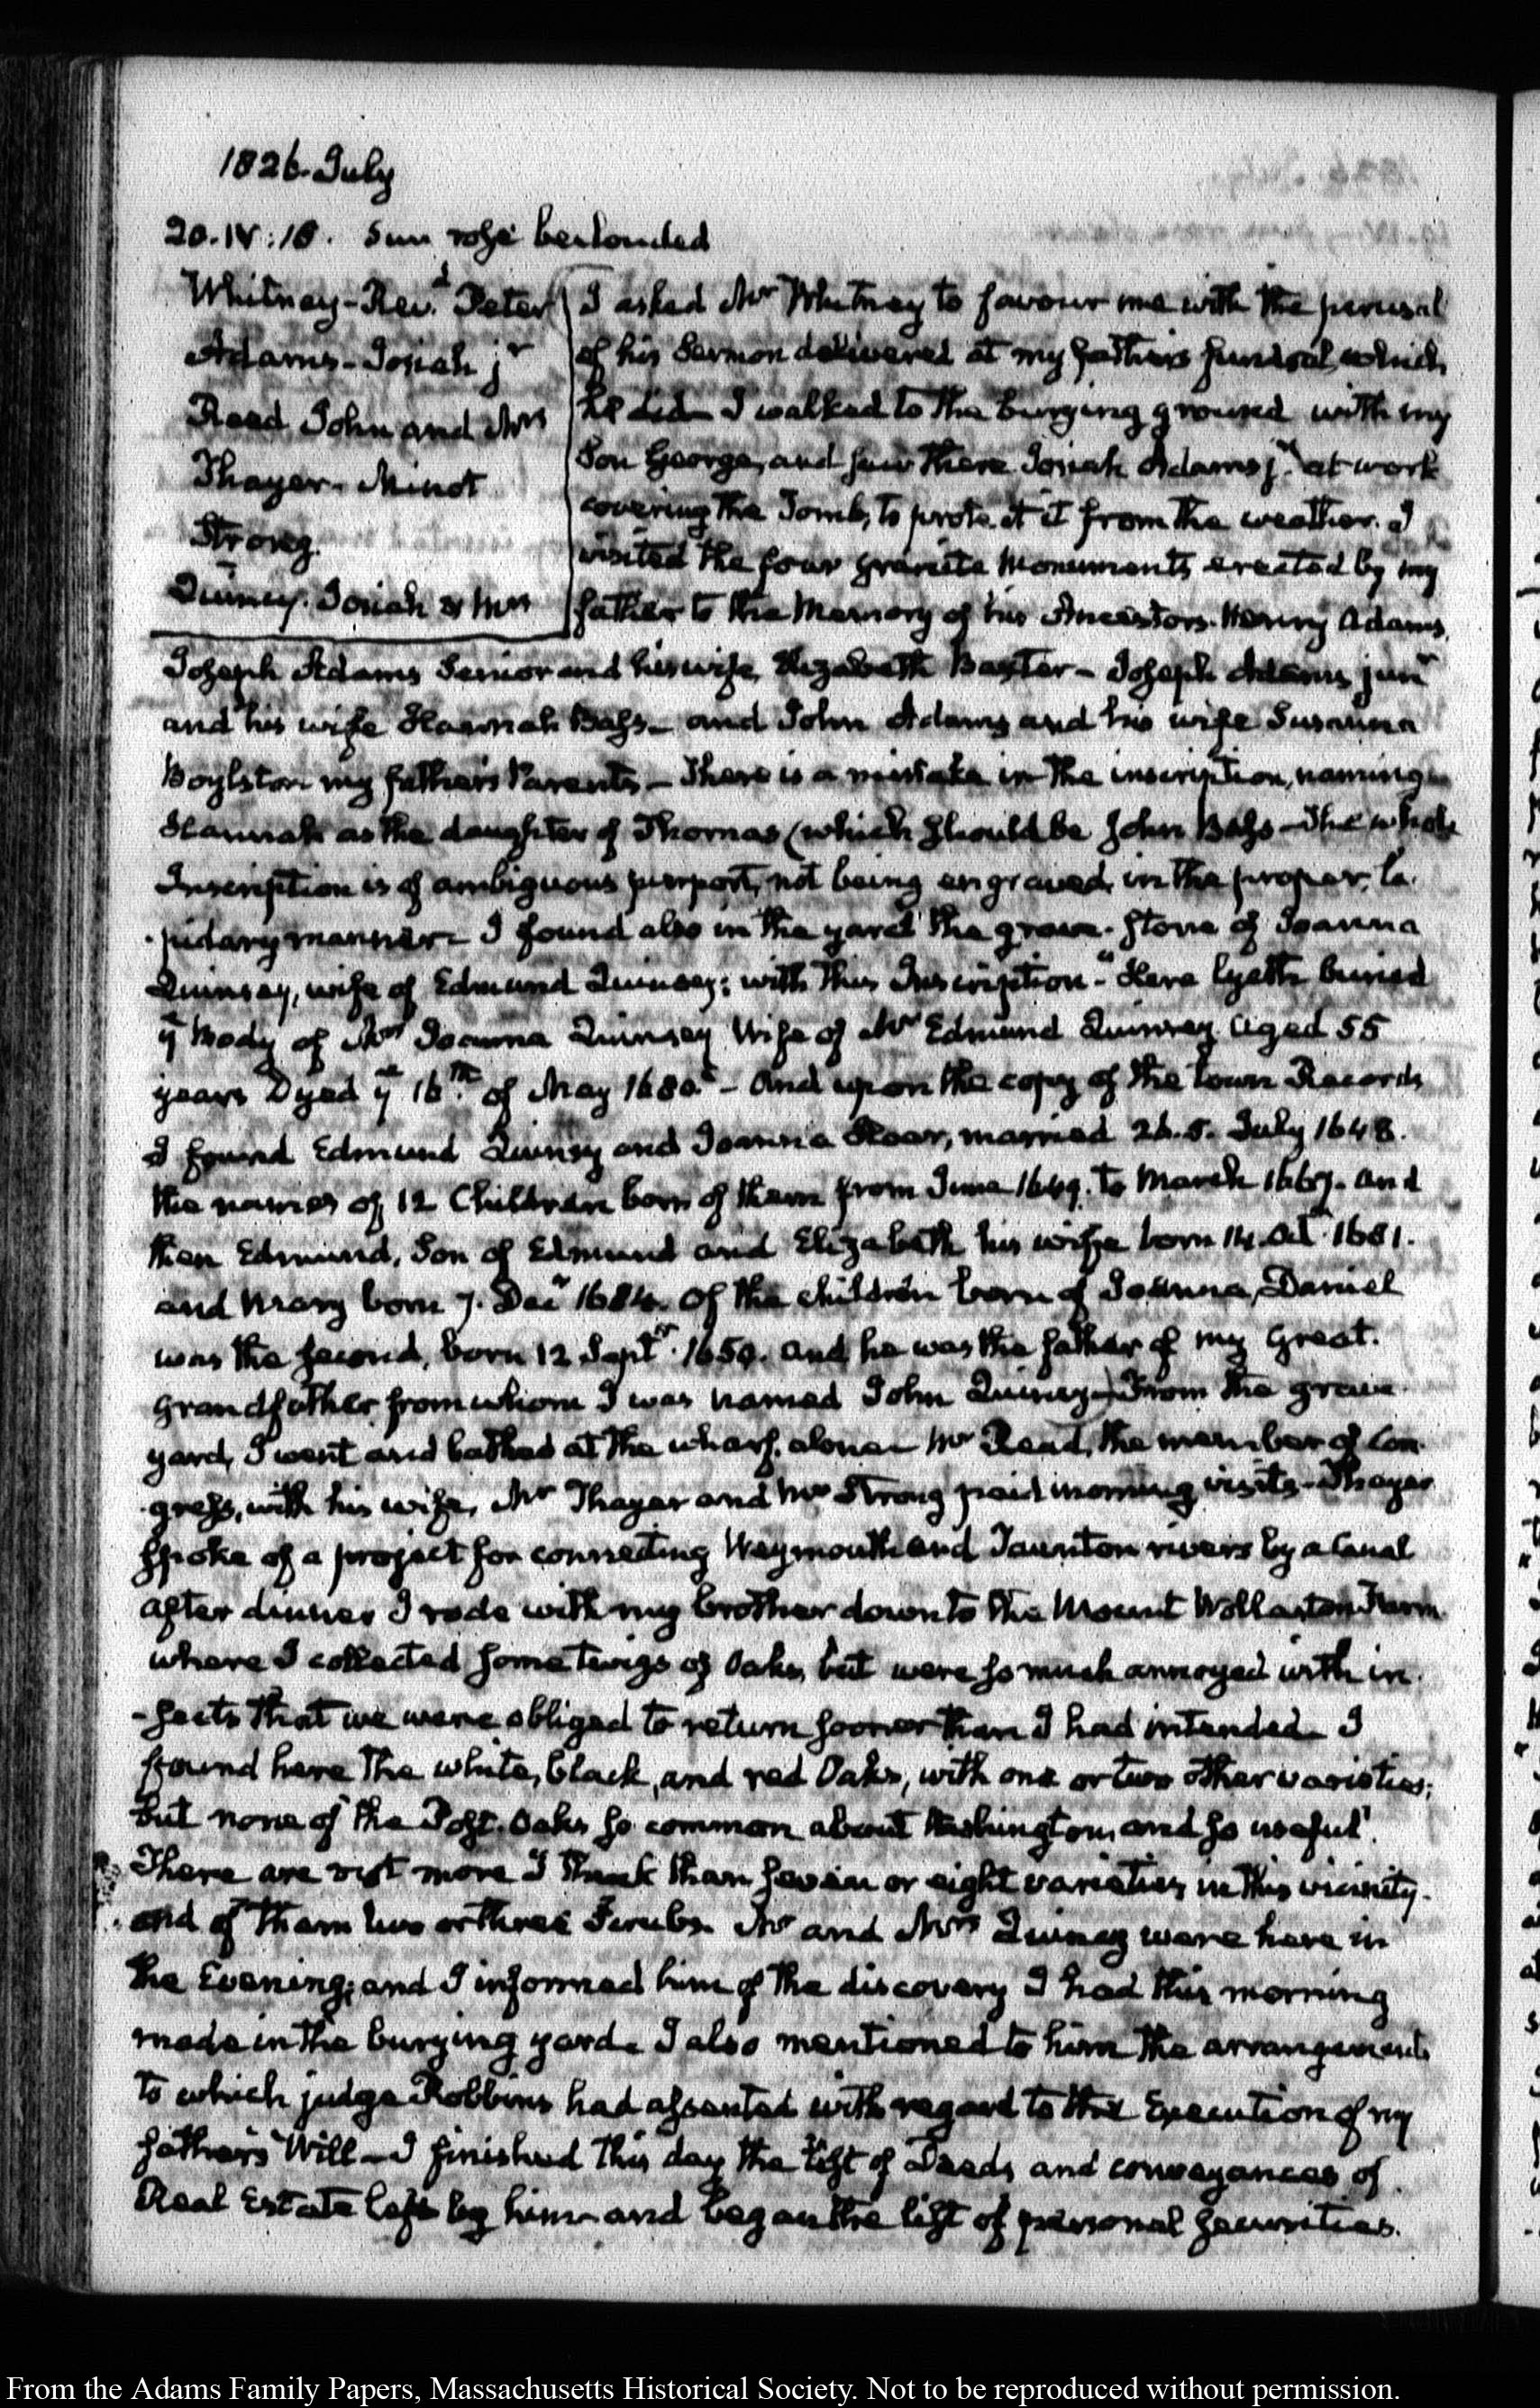 1826. July
20. IV:15. Sun rose beclouded
Whitney - Revd. Peter
Adams - Josiah jr
Reed John and Mrs
Thayer - Minot
Strong.
Quincy. Josiah & Mrs
I asked Mr Whitney to favour me with the perusal
of his Sermon delivered at my father's funeral, which
he did - I walked to the burying ground with my
Son George, and saw there Josiah Adams jr. at work
covering the Tomb, to protect it from the weather. I
visited the four granite Monuments erected by my
father to the Memory of his Ancestors. Henry Adams,
Joseph Adams Senior and his wife, Elizabeth Baxter - Joseph Adams junr
and his wife Hannah Bass - and John Adams and his wife Susanna
Boylston my father's Parents - There is a mistake in the inscription, naming
Hannah as the daughter of Thomas (which should be John) Bass - The whole
Inscription is of ambiguous purport, not being engraved in the proper la-
-pidary manner - I found also in the yard the grave-stone of Joanna
Quinsey, wife of Edmund Quinsey; with this Inscription - "Here lyeth buried
ye Body of Mrs Joanna Quinsey Wife of Mr Edmund Quinsey aged 55
years Dyed ye 16th. of May 1680" - And upon the copy of the town Records
I found Edmund Quinsy and Joanna Hoar, married 26. 5. July 1648.
the names of 12 Children born of them from June 1649. to March 1667. and
then Edmund, Son of Edmund and Elizabeth his wife born 14 Octr 1681.
and Mary born 7. Decr 1684. Of the children born of Joanna, Daniel
was the second, born 12 Septr. 1650. and he was the father of my Great-
grandfather from whom I was named John Quincy - From the grave
yard, I went and bathed at the wharf, alone - Mr Reed, the member of Con-
-gress, with his wife, Mr Thayer and Mr Strong paid morning visits - Thayer
spoke of a project for connecting Weymouth and Taunton rivers by a Canal
after dinner I rode with my brother down to the Mount Wollaston Farm
where I collected some twigs of Oaks, but were so much annoyed with in-
-sects that we were obliged to return sooner than I had intended - I
found here the white, black, and red Oaks, with one or two other varieties;
but none of the Post-Oaks so common about Washington, and so useful.
There are not more I think than seven or eight varieties in this vicinity.
and of them two or three Scrubs. Mr and Mrs Quincy were here in
the Evening; and I informed him of the discovery I had this morning
made in the burying yard. I also mentioned to him the arrangements
to which judge Robbins had assented with regard to the Execution of my
father's Will - I finished this day the list of Deeds and conveyances of
Real Estate left by him - and began the list of personal securities.
From the Adams Family Papers, Massachusetts Historical Society. Not to be reproduced without permission.